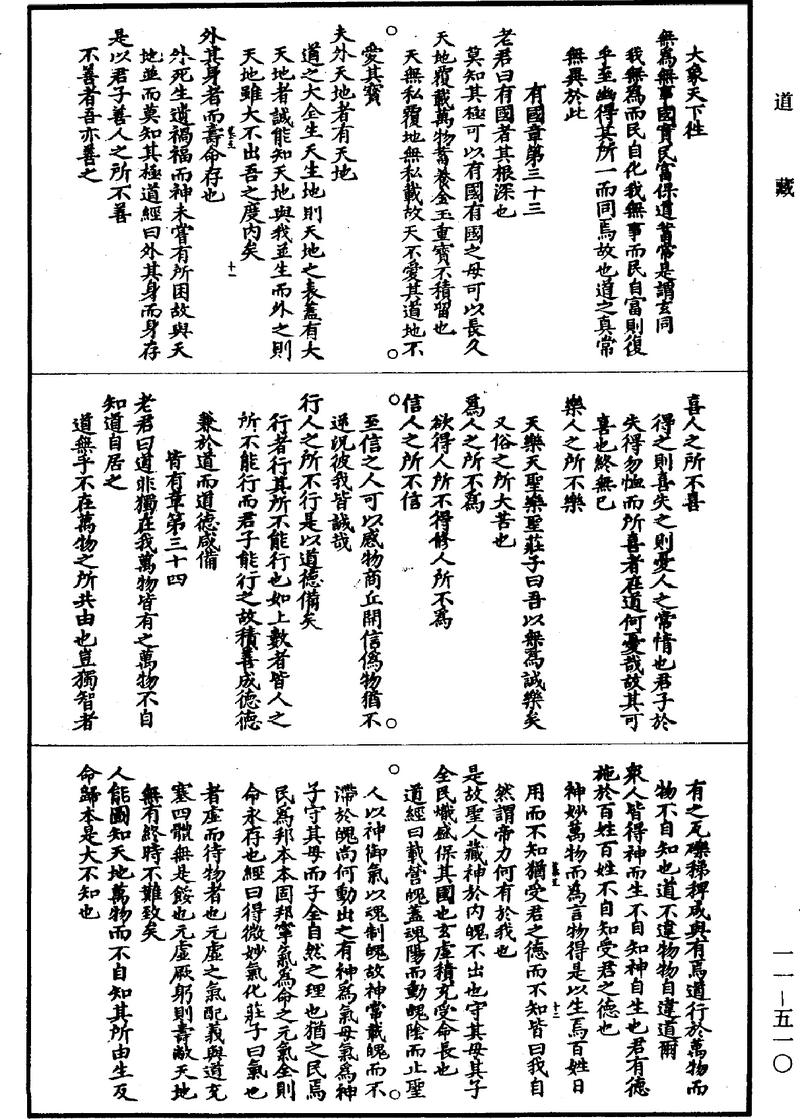 道藏
大象天下往
無為無事國實民富保道畜常是謂玄同
我無為而民自化我無事而民自富則復
乎至幽得其所一而同焉故也道之真常
無異於此
有國章第三十三
老君曰有國者其根深也
莫知其極可以有國有國之母可以長久
天地覆載萬物蓄養金玉重寶不積留也
天無私覆地無私載故天不愛其道地不
愛其寶
夫外天地者有天地
道之大全生天生地則天地之表蓋有大
天地者誠能知天地與我並生而外之則
天地雖大不出吾之度內矣
十一
外其身者而壽命存也
外死生遺禍福而神未嘗有所困故與天
地並而莫知其極道經曰外其身而身存
是以君子善人之所不善
不善者吾亦善之
喜人之所不喜
得之則喜失之則憂人之常情也君子於
失得勿恤而所喜者在道何憂哉故其可
喜也終無已
樂人之所不樂
天樂天聖樂聖莊子曰吾以無為誠樂矣
又俗之所大苦也
為人之所不為
欲得人所不得修人所不為
信人之所不信
至信之人可以感物商丘開信偽物猶不
逆況彼我皆誠哉
行人之所不行是以道德備矣
行者行其所不能行也如上數者皆人之
所不能行而君子能行之故積善成德德
兼於道而道德咸備
皆有章第三十四
老君曰道非獨在我萬物皆有之萬物不自
知道自居之
道無乎不在萬物之所共由也豈獨智者
有之瓦礫稊稗咸與有焉道行於萬物而
物不自知也道不違物物自違道爾
眾人皆得神而生不自知神自生也君有德
施於百姓百姓不自知受君之德也
神妙萬物而為言物得是以生焉百姓日
十二
用而不知猶受君之德而不知皆曰我自
然謂帝力何有於我也
是故聖人藏神於內魄不出也守其母其子
全民熾盛保其國也玄虛積充受命長也
道經曰載營魄蓋魂陽而動魄陰而止聖
人以神御氣以魂制魄故神常載魄而不
滯於魄尚何動出之有神為氣母氣為神
子守其母而子全自然之理也猶之民焉
民為邦本本固邦寧氣為命之元氣全則
命永存也經曰得微妙氣化莊子曰氣也
者虛而待物者也元虛之氣配義與道充
塞四體無是餒也元虛厥躬則壽敵天地
無有終時不難致矣
人能圖知天地萬物而不自知其所由生反
命歸本是大不知也
一一—五一〇